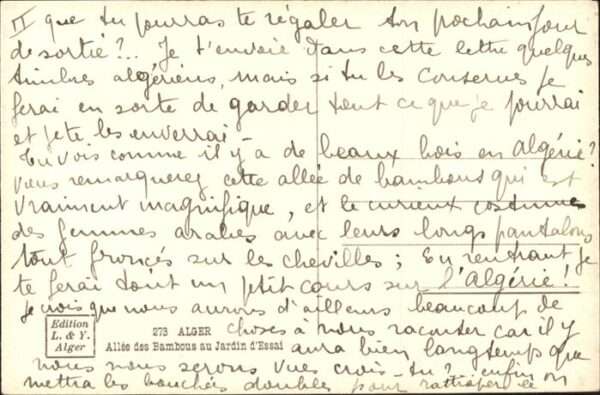 II que tu pourras te régaler ton prochain jour
de sortie?... Je t'envoie dans cette lettre quelques
timbres algériens, mais si tu les conserves je
ferai en sorte de garder tout ce que je pourrai
et je te les enverrai -
Tu vois comme il y a de beaux bois en Algérie?
vous remarquerez cette allée de bambous qui est
vraiment magnifique, et le curieux costume
des femmes arabes avec leurs longs pantalons
tout froncés sur les chevilles; En rentrant je
te ferai tout un petit cours sur l'Algérie!
je crois que nous aurons d'ailleurs beaucoup de
choses à nous raconter car il y
aura bien longtemps que
nous nous serons vues crois-tu? enfin on
mettra les bouchées doubles pour rattraper
Edition
L. & Y.
Alger
273 ALGER
Allée des Bambous au Jardin d'Essai